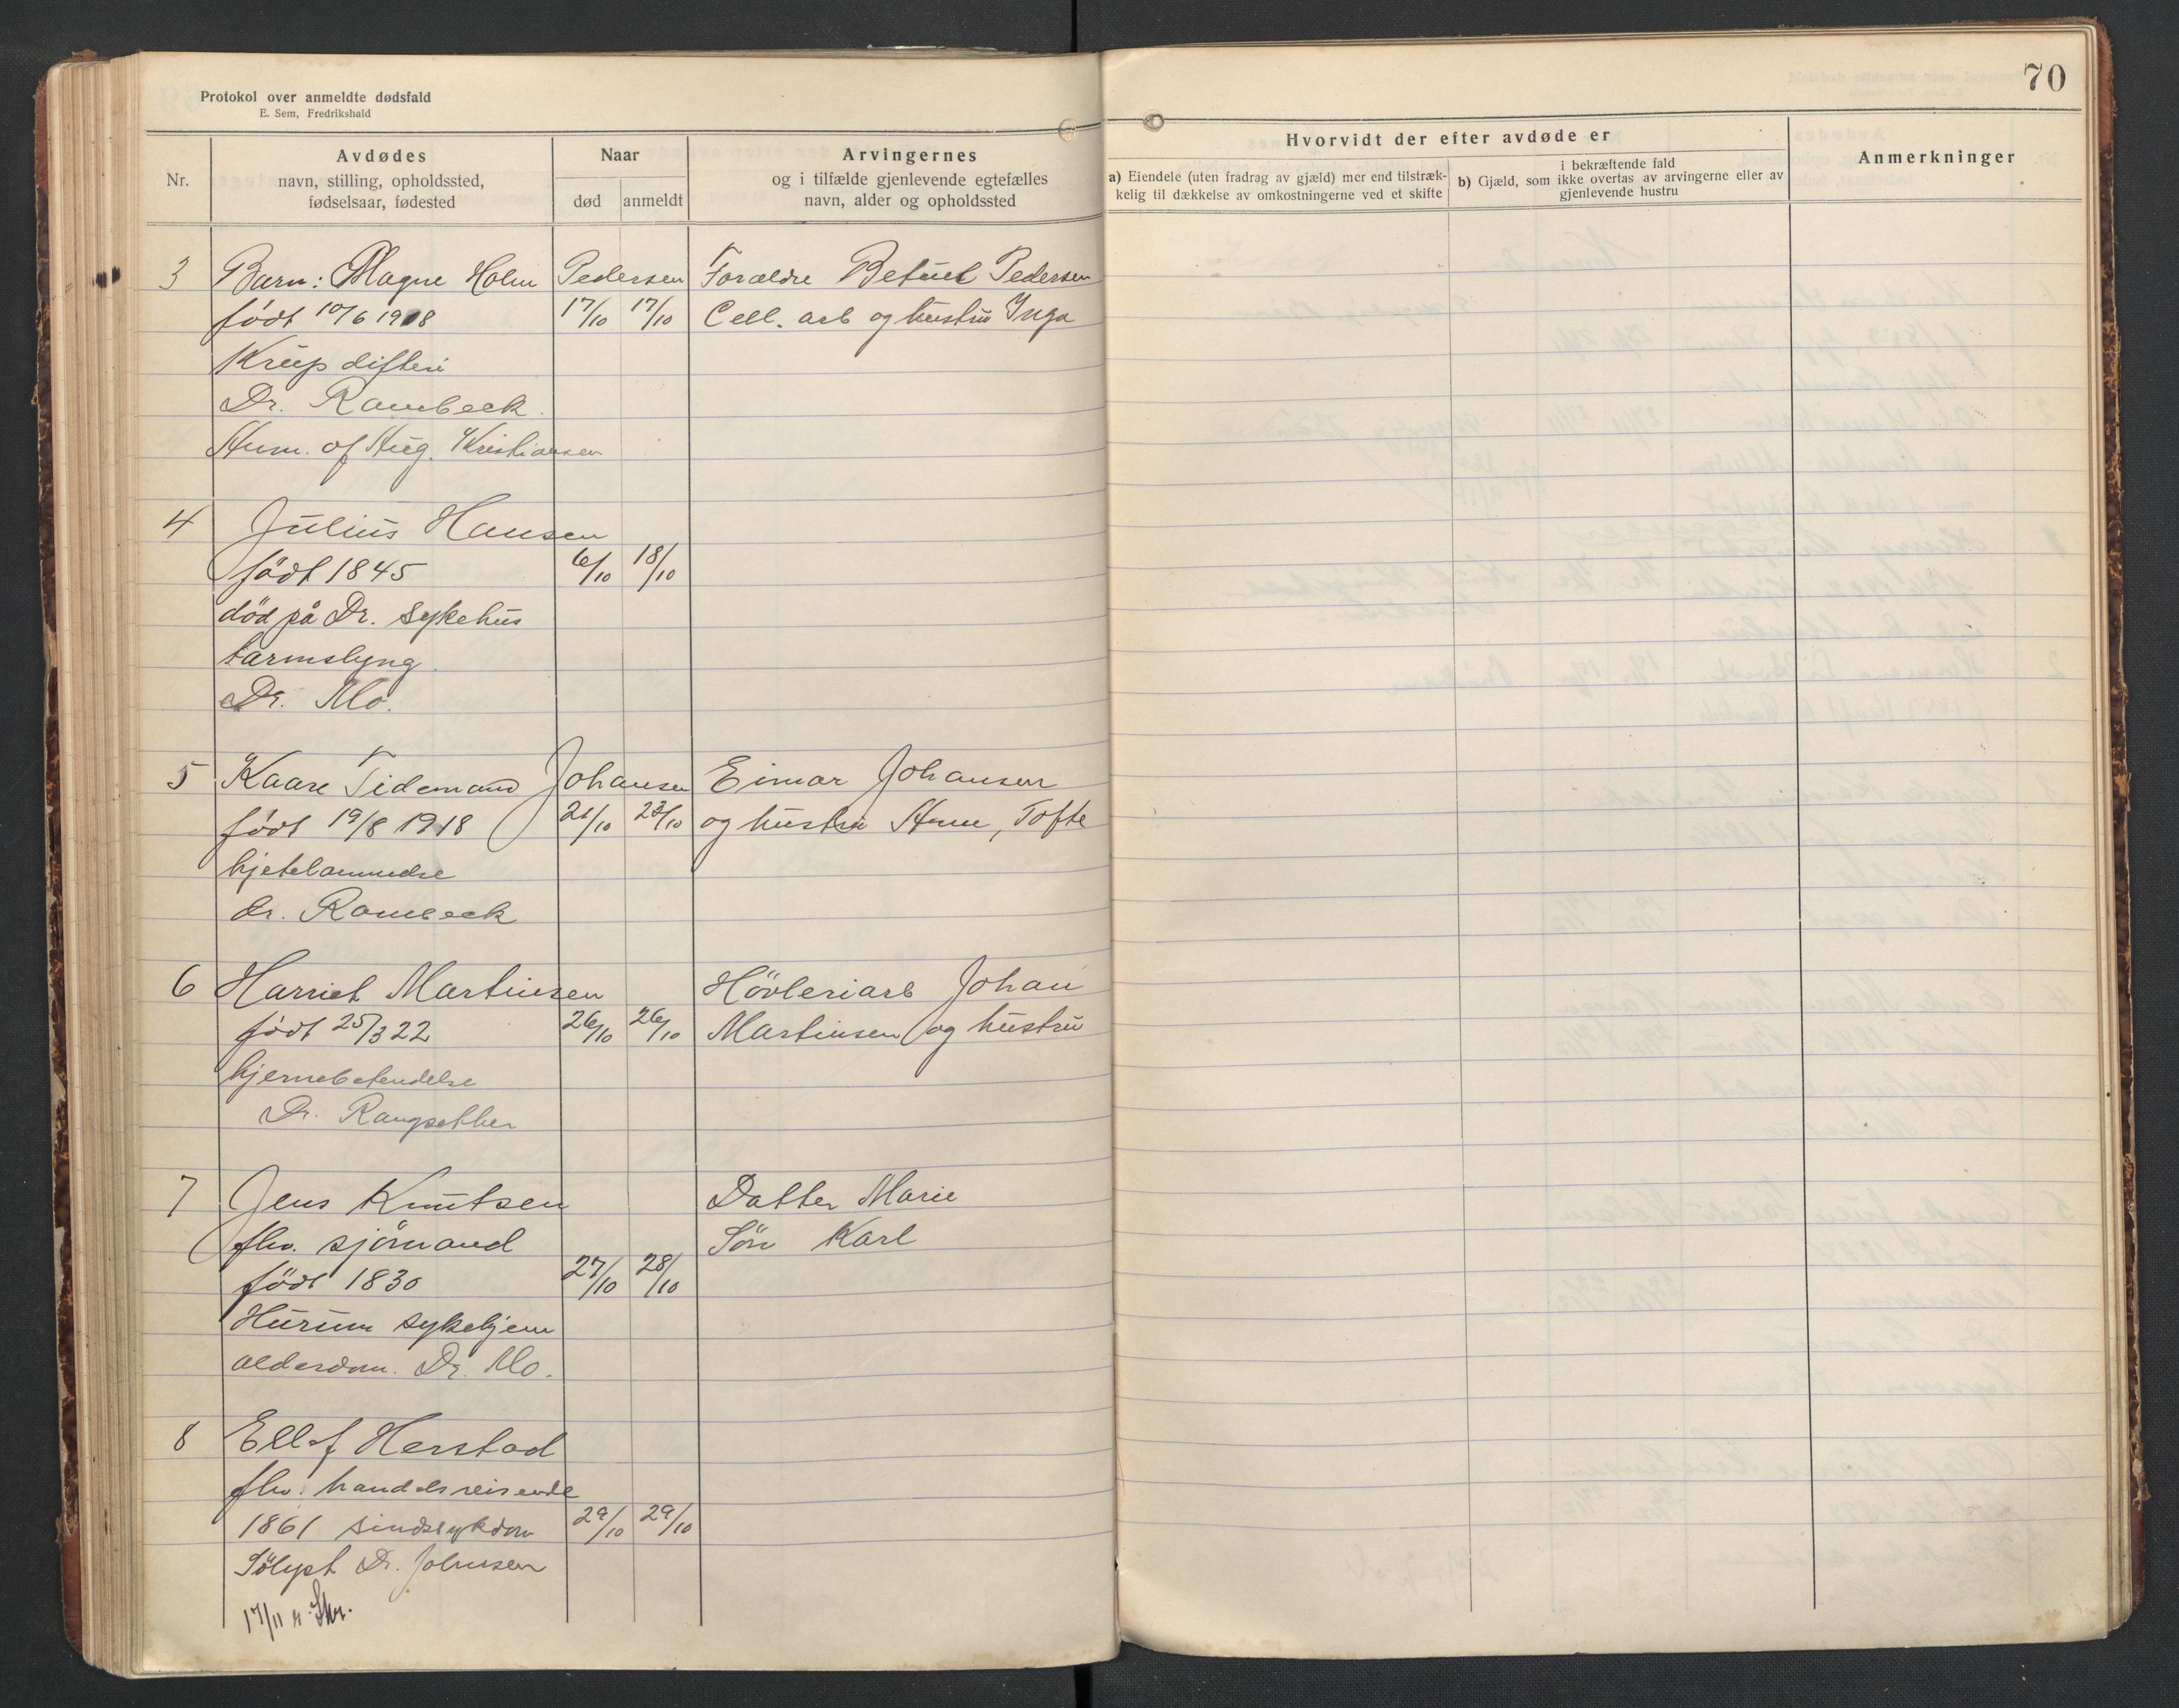 Protokol over anmeldte dødsfald
E. Sem, Fredrikshald
Nr.
Avdødes
navn, stilling, opholdssted,
fødselsaar, fødested
Naar
død
anmeldt
Arvingernes
og i tilfælde gjenlevende egtefælles
navn, alder og opholdssted
3 Barn: Magne Holm Pedersen Forældre Betuel Pedersen
født 10/6 1918 17/10 17/10 Cell. arb og hustru Inga
Krup difteri
Dr. Rambeck.
Hum. of Aug. Kristiansen
4 Julius Hansen
født 1845 6/10 18/10
død på Dr. sykehus
tarmslyng.
Dr. Mo.
5 Kaare Tidemand Johansen Einar Johansen
født 19/8 1918 21/10 23/10 og hustru Hum, Tofte
hjetelammelse
dr. Rambeck
6 Harriet Martinsen Hövleriarb Johan
født 25/3 22 26/10 26/10 Martinsen og hustru
hjernebetendelse
Dr.
7 Jens Knutsen Datter Marie
fhv. sjömand Sön Karl
född 1830 27/10 28/10
Hurum sykehjem
alderdom. Dr. Mo.
8 Ellef Herstad
fhv. handelsreisende
1861 sindssykdom 29/10 29/10
Sölyst Dr. Johnsen
17/11
70
Hvorvidt der efter avdøde er
a) Eiendele (uten fradrag av gjæld) mer end tilstræk-
kelig til dækkelse av omkostningerne ved et skifte
i bekræftende fald
b) Gjæld, som ikke overtas av arvingerne eller av
gjenlevende hustru
Anmerkninger